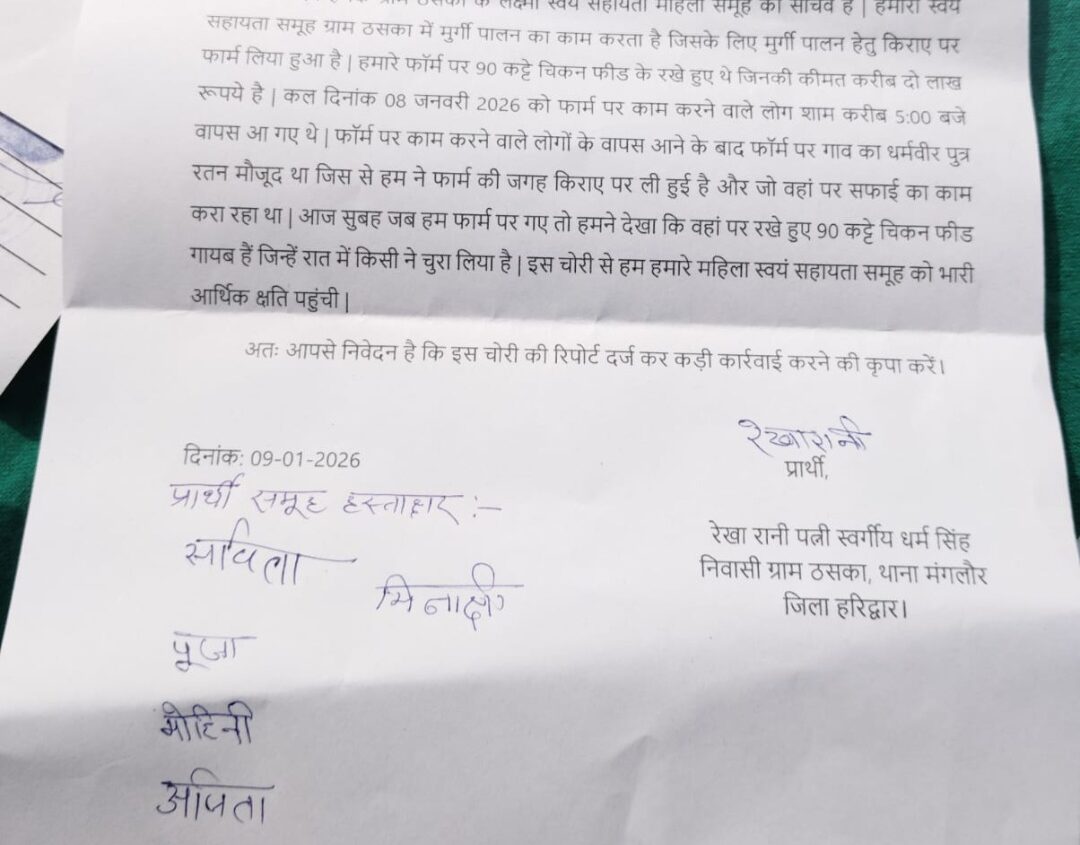 ग्राम ठसका के लक्ष्मी स्वयं सहायता महिला समूह की सचिव है | हमारा स्वयं
सहायता समूह ग्राम ठसका में मुर्गी पालन का काम करता है जिसके लिए मुर्गी पालन हेतु किराए पर
फार्म लिया हुआ है | हमारे फॉर्म पर 90 कट्टे चिकन फीड के रखे हुए थे जिनकी कीमत करीब दो लाख
रूपये है | कल दिनांक 08 जनवरी 2026 को फार्म पर काम करने वाले लोग शाम करीब 5:00 बजे
वापस आ गए थे | फॉर्म पर काम करने वाले लोगों के वापस आने के बाद फॉर्म पर गाव का धर्मवीर पुत्र
रतन मौजूद था जिस से हम ने फार्म की जगह किराए पर ली हुई है और जो वहां पर सफाई का काम
करा रहा था | आज सुबह जब हम फार्म पर गए तो हमने देखा कि वहां पर रखे हुए 90 कट्टे चिकन फीड
गायब हैं जिन्हें रात में किसी ने चुरा लिया है | इस चोरी से हम हमारे महिला स्वयं सहायता समूह को भारी
आर्थिक क्षति पहुंची |
अतः आपसे निवेदन है कि इस चोरी की रिपोर्ट दर्ज कर कड़ी कार्रवाई करने की कृपा करें।
रेखा रानी
प्रार्थी,
दिनांक: 09-01-2026
प्रार्थी समूह हस्ताक्षर :-
रेखा रानी पत्नी स्वर्गीय धर्म सिंह
निवासी ग्राम ठसका, थाना मंगलौर
जिला हरिद्वार।
सविता
मिनाक्षी
पूजा
मोहिनी